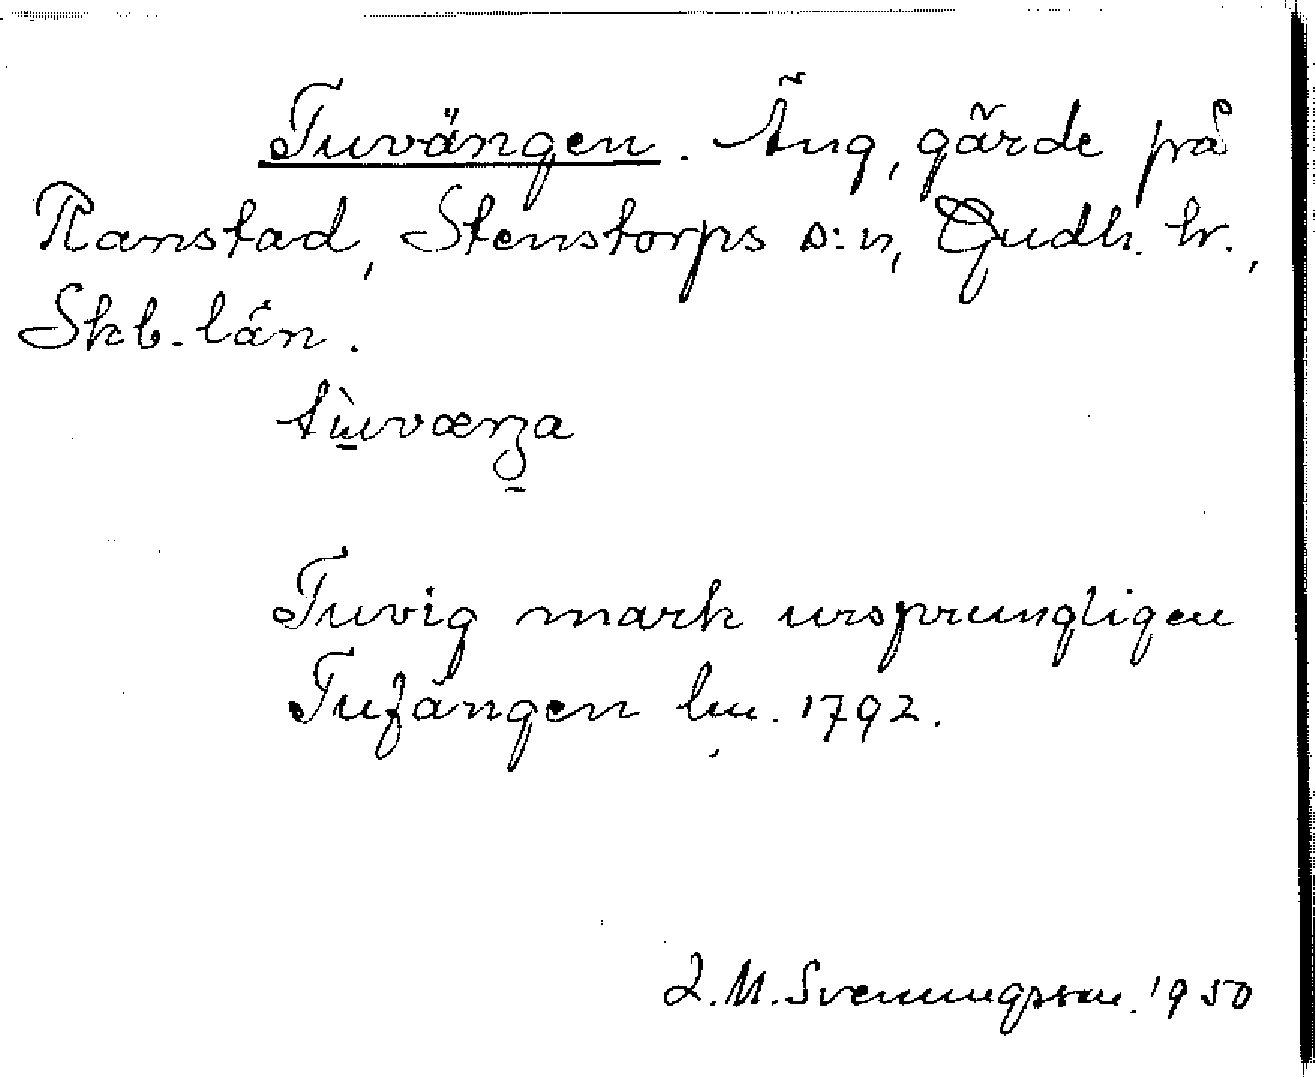 Tuvängen. Äng, gärde på
Ranstad, Stenstorps s:n, Gudh. hr.,
Skb. län.
tùvæŋa
Tuvig mark ursprungligen
Tufängen lm. 1792.
L.M. Svenungsson. 1950